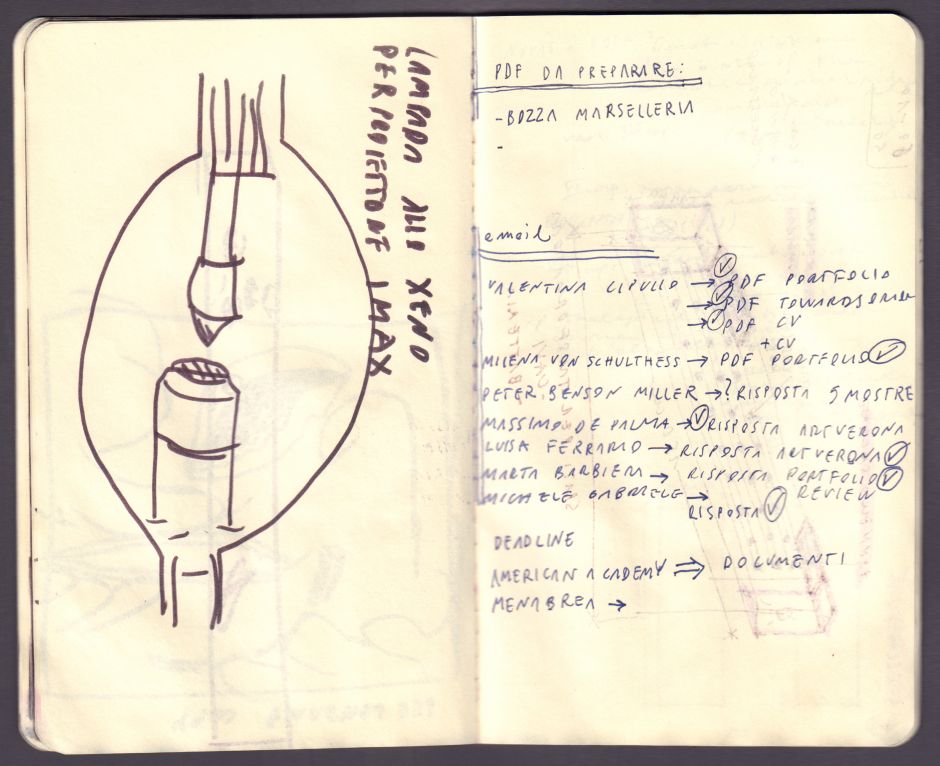 LAMPADA ALLO XENO
PER PROIETTORE IMAX
PDF DA PREPARARE:
- BOZZA MARSELLERIA
-
email
VALENTINA CIPULLO → PDF PORTFOLIO
→ PDF TOWARDS
→ PDF CV
+ CV
MILENA VON SCHULTHESS → PDF PORTFOLIO
PETER BENSON MILLER → ? RISPOSTA 5 MOSTRE
MASSIMO DE PALMA → RISPOSTA ARTVERONA
LUISA FERRARIO → RISPOSTA ARTVERONA
MARTA BARBIERI → RISPOSTA PORTFOLIO
REVIEW
MICHELE GABRIELE →
RISPOSTA
DEADLINE
AMERICAN ACADEMY ⇒ DOCUMENTI
MENABREA →